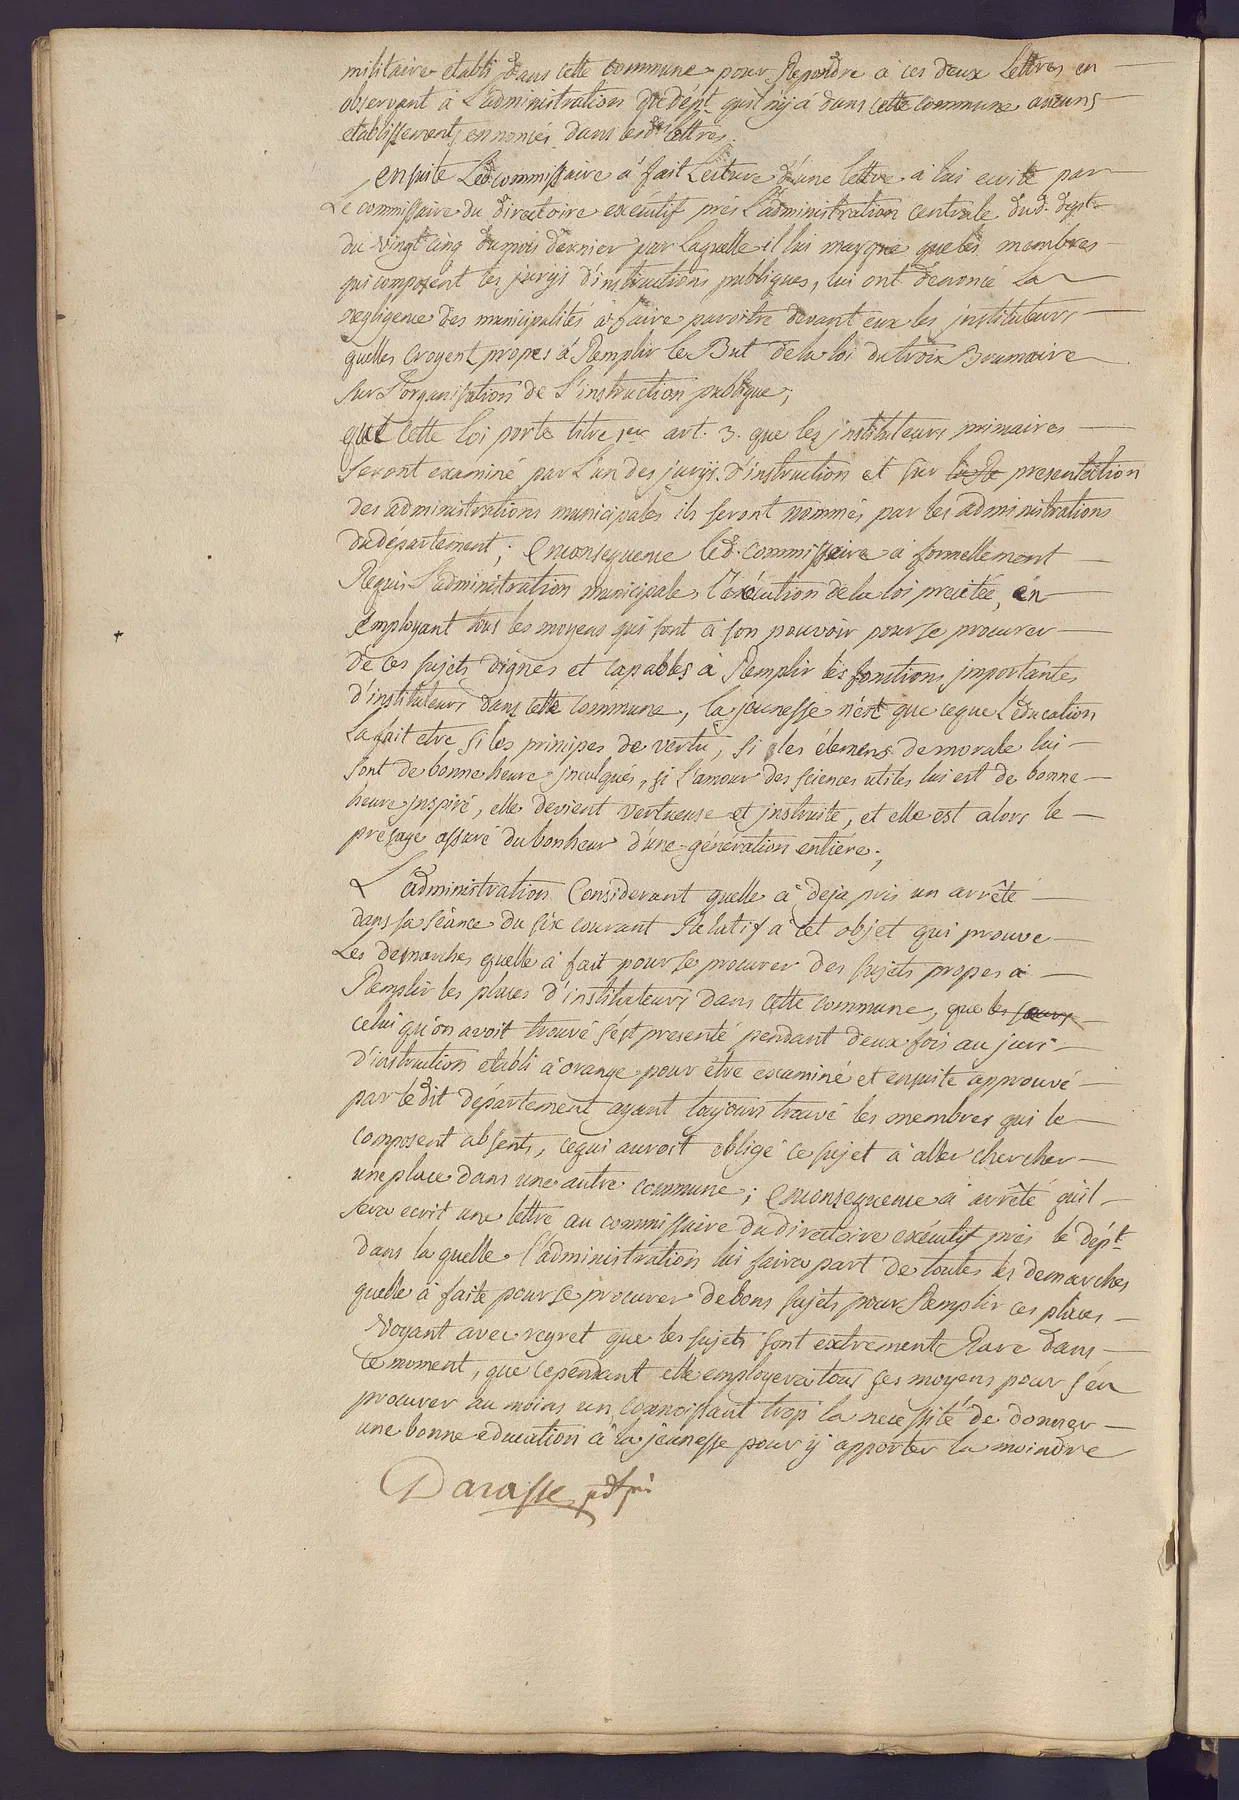 militaire etabli dans cette commune pour Repondre à ces deux Lettres en
observant à L'administration du dépt. quil n'y à dans cette commune aucuns
etablissements ennoncés dans lesd. lettres.
ensuite Led. commissaire à fait Lecture d'une lettre a lui ecrite par
Le commissaire du directoire exécutif près L'administration centrale dud. dépt.
du vingt cinq du mois dernier par Laquelle il lui marque que les membres
qui composent les jurys d'instructions publiques, lui ont denoncé La
negligence des municipalités à faire paroitre devant eux les instituteurs
quelles croyent propes à Remplir le But de la loi du trois Brumaire
sur L'organisation de L'instruction publique;
que cette loi porte titre 1er art. 3. que les instituteurs primaires
seront examiné par L'un des jurys d'instruction et sur la de presentation
des administrations municipales ils seront nommés par les administrations
du département; Enconsequence led. commissaire à formellement
Requis L'administration municipale, l'éxécution de la loi precitée, en
Employant tous les moyens qui sont à son pouvoir pour se procurer
de ces sujets dignes et capables à Remplir les fonctions importantes
d'instituteurs dans cette commune, la jeunesse n'est que ceque L'éducation
La fait etre si les principes de vertu, si les élemens de morale lui
sont de bonne heure inculqués, si L'amour des sciences utiles lui est de bonne
heure inspiré, elle devient vertueuse et instruite, et elle est alors le
présage assuré du bonheur d'une génération entière;
L'administration Considerant quelle à deja pris un arrêté
dans sa séance du six courant Relatif à cet objet qui prouve
Les demarches quelle à fait pour se procurer des sujets propes à
Remplir les places d'instituteurs dans cette commune, que les
celui qu'on avoit trouvé s'est presenté pendant deux fois au juri
d'instruction etabli à orange pour être examiné et ensuite approuvé
par ledit département ayant toujours trouvé les membres qui le
composent absents, cequi auroit obligé ce sujet à aller chercher
une place dans une autre commune; Enconsequence à arrêté quil
sera ecrit une lettre au commissaire du directoire exécutif près le dépt.
dans la quelle l'administration lui faira part de toutes les demarches
quelle à faite pour se procurer de bons sujets pour Remplir ces places
Voyant avec regret que les sujets sont extrement Rare dans
ce moment, que cependant elle employera tous ses moyens pour s'en
procurer au moins un connoissant trop la necessité de donner
une bonne education à la jeunesse pour ij apporter la moindre
Darasse